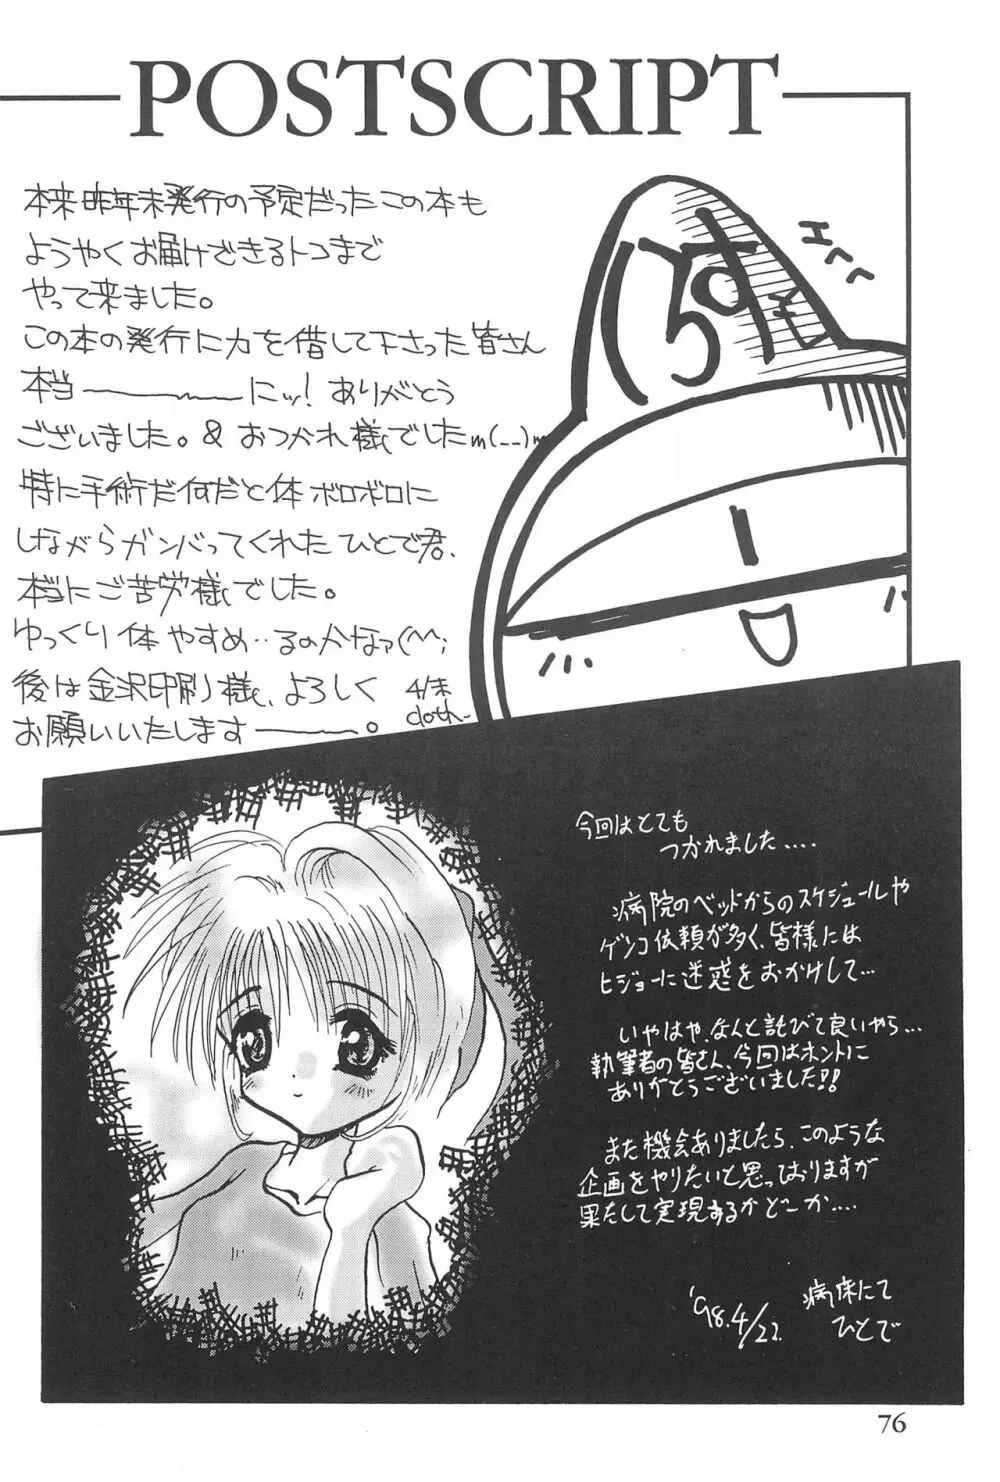 POSTSCRIPT
本来昨年末発行の予定だったこの本も
ようやくお届けできるトコまで
やって来ました。
この本の発行に力を借して下さった皆さん
本当――――にッ! ありがとう
ございました。& おつかれ様でしたm(__)m
特に手術だ何だと体ボロボロに
しながらガンバってくれたひとで君、
本当にご苦労様でした。
ゆっくり体やすめ‥るのかなァ(^^;
後は金沢印刷様、よろしく
お願いいたします――――。
4/末
cloth-
エヘヘ
今回はとても
つかれました....
病院のベッドからのスケジュールや
ゲンコ依頼が多く、皆様には
ヒジョーに迷惑をおかけして...
いやはや、なんと詫びて良いやら...
執筆者の皆さん、今回はホントに
ありがとうございました!!
また機会ありましたら、このような
企画をやりたいと思っおりますが
果たして実現するかどーか....
'98.4/22.
病床にて
ひとで
76